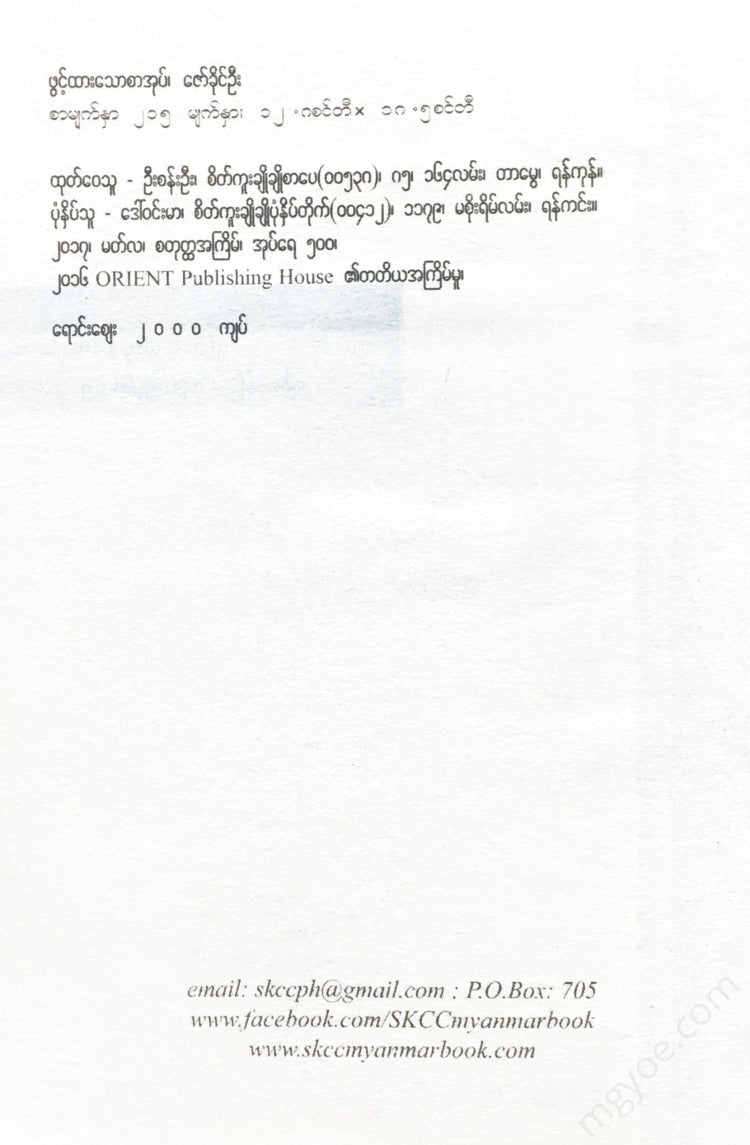 ဖွင့်ထားသောစာအုပ်၊ ဇော်ခိုင်ဦး
စာမျက်နှာ ၂၁၅ မျက်နှာ၊ ၁၂.၈စင်တီ× ၁၈.၅စင်တီ
ထုတ်ဝေသူ - ဦးစန်းဦး၊ စိတ်ကူးချိုချိုစာပေ(၀၀၅၃၈)၊ ၈၅၊ ၁၆၄လမ်း၊ တာမွေ၊ ရန်ကုန်။
ပုံနှိပ်သူ - ဒေါ်ဝင်းမာ၊ စိတ်ကူးချိုချိုပုံနှိပ်တိုက်(၀၀၄၁၂)၊ ၁၁၇၉၊ မစိုးရိမ်လမ်း၊ ရန်ကင်း။
၂၀၁၇၊ မတ်လ၊ စတုတ္ထအကြိမ်၊ အုပ်ရေ ၅၀၀၊
၂၀၁၆ ORIENT Publishing House ၏တတိယအကြိမ်မူ၊
ရောင်းဈေး ၂ ၀ ၀ ၀ ကျပ်
email: skccph@gmail.com : P.O.Box: 705
www.facebook.com/SKCCmyanmarbook
www.skccmyanmarbook.com
mgyoe.com